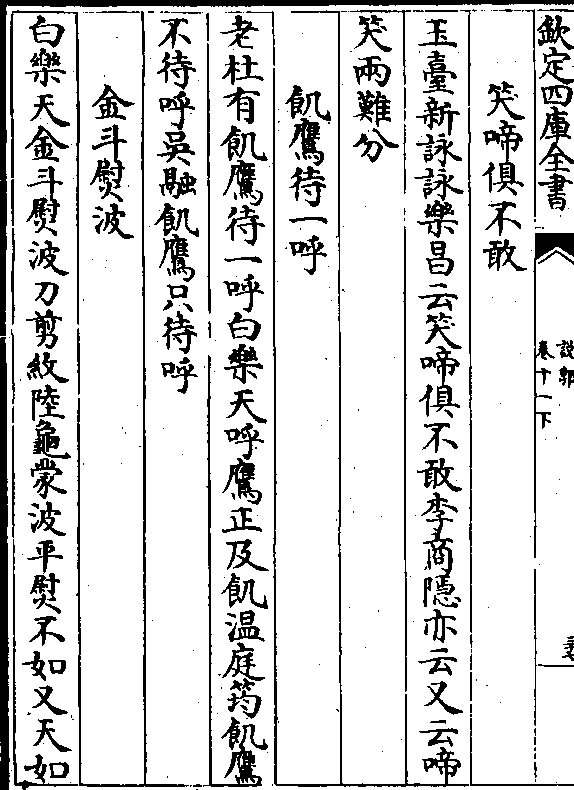 欽定四庫全書
說郛
卷十一下
笑啼俱不敢
玉臺新詠詠樂昌云笑啼俱不敢李商隱亦云又云啼
笑兩難分
飢鷹待一呼
老杜有飢鷹待一呼白樂天呼鷹正及飢温庭筠飢鷹
不待呼吳融飢鷹只待呼
金斗熨波
白樂天金斗熨波刀剪紋陸龜蒙波平熨不如又天如